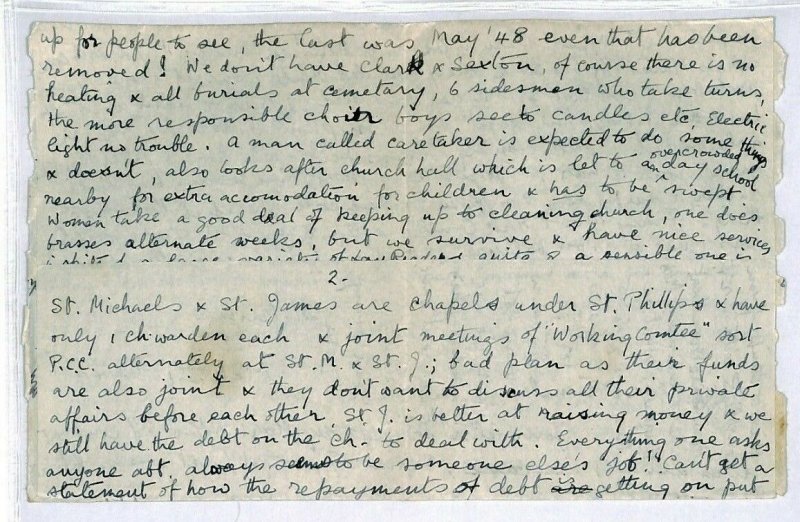 up for people to see, the last was May '48 even that has been
removed! We don't have Clark x Sexton, of course there is no
heating x all burials at cemetary, 6 sidesmen who take turns,
the more responsible choir boys see to candles etc, Electric
light no trouble. A man called caretaker is expected to do some things
x doesn't, also looks after church hall which is let to an overcrowded day school
nearby for extra accomodation for children x has to be swept
Women take a good deal of keeping up to cleaning church, one does
brasses alternate weeks, but we survive x have nice services
quite a sensible one is
2-
St. Michaels x St. James are chapels under St. Phillips x have
only 1 ch: warden each x joint meetings of "Working Comtee" sort
P.C.C. alternately at St. M. x St. J.; bad plan as their funds
are also joint x they don't want to discuss all their private
affairs before each other. St J. is better at raising money x we
still have the debt on the ch- to deal with. Everything one asks
anyone abt, always seems to be someone else's job! Can't get a
statement of how the repayments of debt is getting on put